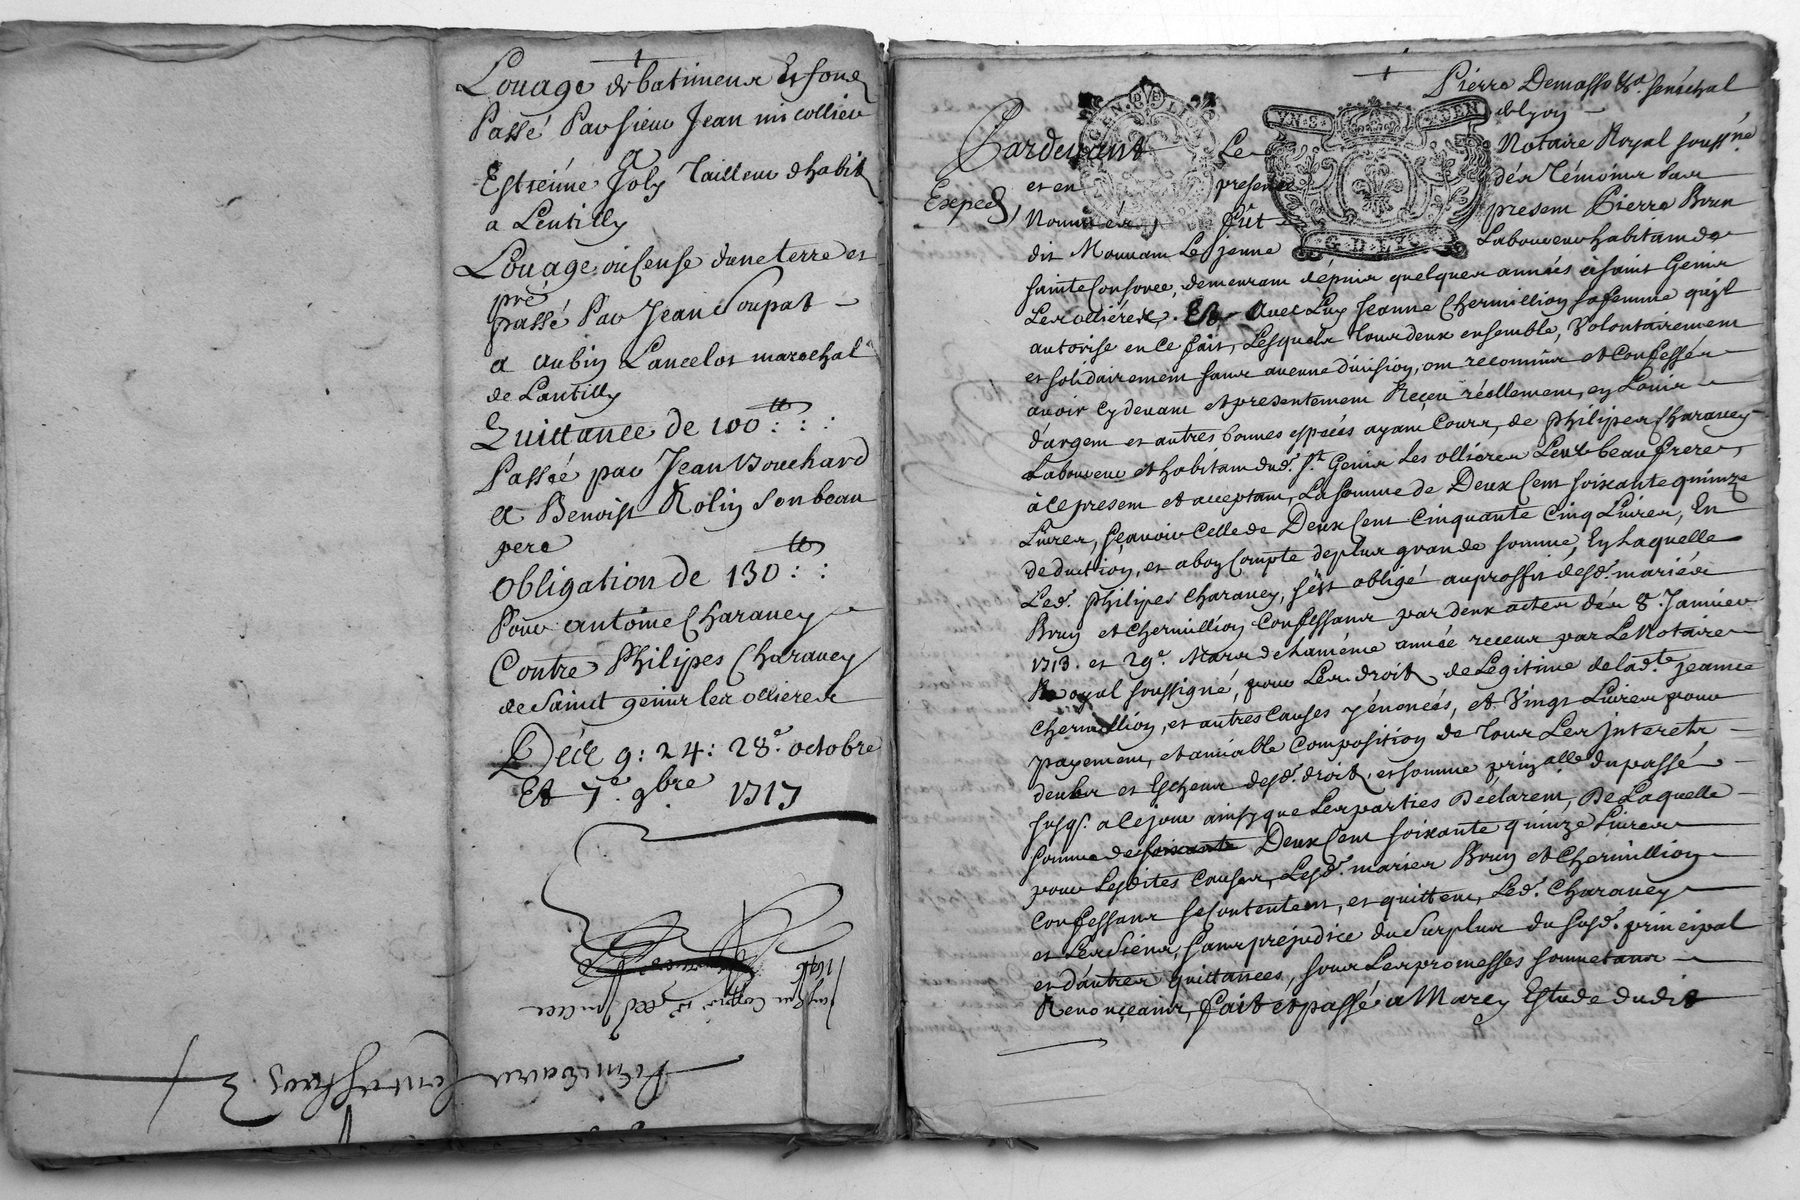 Louage de batimens Et fond
Passé Par sieur Jean micollier
a
Estiénne Joly Tailleur dhabit
a Lentilly
Louage ou Cense dune terre et
pré
passé Par Jean Coupat
a aubin Lancelot marechal
de Lantilly
Quittance de 100 ₶ : :
Passée par Jean Bouchard
a Benoist Rolin son beau
pere
Obligation de 130 ₶ : :
Pour antoine Charavey
Contre Philipes Charavey
de Saint genis les ollieres
De 9: 24: 28e. octobre
Et 7e. 9bre 1717
Pierre Demasso &a. sénéchal
delyon
Pardevant Le Notaire Royal souss.né
Exped,
et en presence des Témoins bas
Nommés, fût present Pierre Brun
dit Mornam Le jeune Laboureur habitam de
sainte Consorce, demeuram dépuis quelques années à saint Genis
Les ollières, Et Avec Luy Jeanne Chermillion sa femme quil
autorise en Ce fait, Lesquels Tous deux ensemble, Volontairement
et solidairement sans aucune division, ont reconnus et Confessé
avoir Cy devant et presentement Reçeu réellement, en Louis
d'argem et autres bonnes espéces ayam Cours, de Philipes Charavey
Laboureur et habitam dud. St. Genis Les ollières Leur beau frere,
à Ce present et acceptam, La somme de Deux Cent soixante quinze
Livres, sçavoir Celle de Deux Cent Cinquante Cinq Livres, En
deduction, et a bon Compte de plus grande somme, En Laquelle
Led. Philipes Charavey, s'est obligé au proffit desd. mariés
Brun et Chermillion Confessans par deux actes dés 8. Janvier
1713. et 29e. Mars de La même année receus par Le Notaire
Royal soussigné, pour Les droits de Légitime de lad.te Jeanne
Chermillion, et autres Causes y énoncés, et Vingt Livres pour
payement, et amiable Composition de Tous Les Interets
deubs et Escheus desd. droits, et somme prinalle du passé
jusq. a Ce jour ainsy que Les parties Déclarent, De Laquelle
somme de soixante Deux Cent soixante quinze Livres
pour Lesdites Causes, Lesd. mariés Brun et Chermillion
Confessans se Contentent, et quittent, Led. Charavey
et Les Siens, sans préjudice du surplus du susd. principal
et d'autres quittances, sous Les promesses soumetans
Renonçeans, fait et passé à Marcy Estude dudit